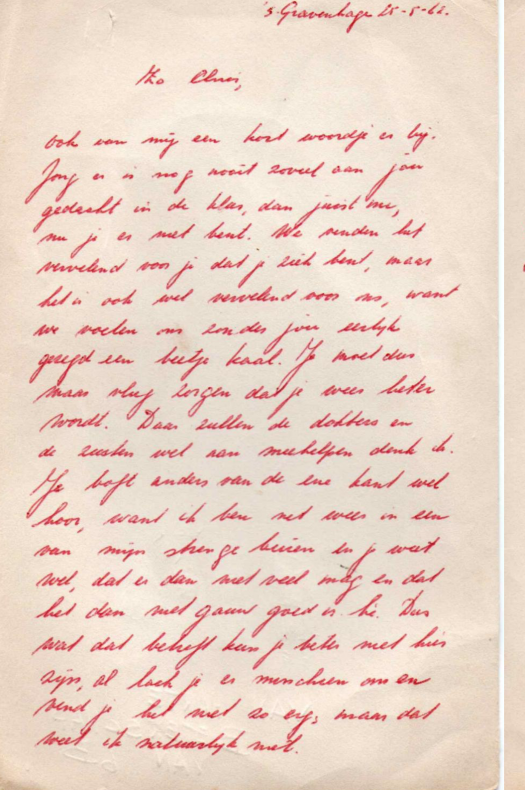 's-Gravenhage 25-5-62.
Zo Chris,
ook van mij een kort woordje er bij.
Jong er is nog nooit zoveel aan jou
gedacht in de klas, dan juist nu,
nu je er niet bent. We vinden het
vervelend voor je dat je ziek bent, maar
het is ook wel vervelend voor ons, want
we voelen ons zonder jou eerlijk
gezegd een beetje kaal. Je moet dus
maar vlug zorgen dat je weer beter
wordt. Daar zullen de dokters en
de zusters wel aan meehelpen denk ik.
Je boft anders van de ene kant wel
hoor, want ik ben net weer in een
van mijn strenge buien en je weet
wel, dat er dan niet veel mag en dat
het dan niet gauw goed is. hè. Dus
wat dat betreft kun je beter niet hier
zijn, al lach je er misschien om en
vind je het niet zo erg; maar dat
weet ik natuurlijk niet.